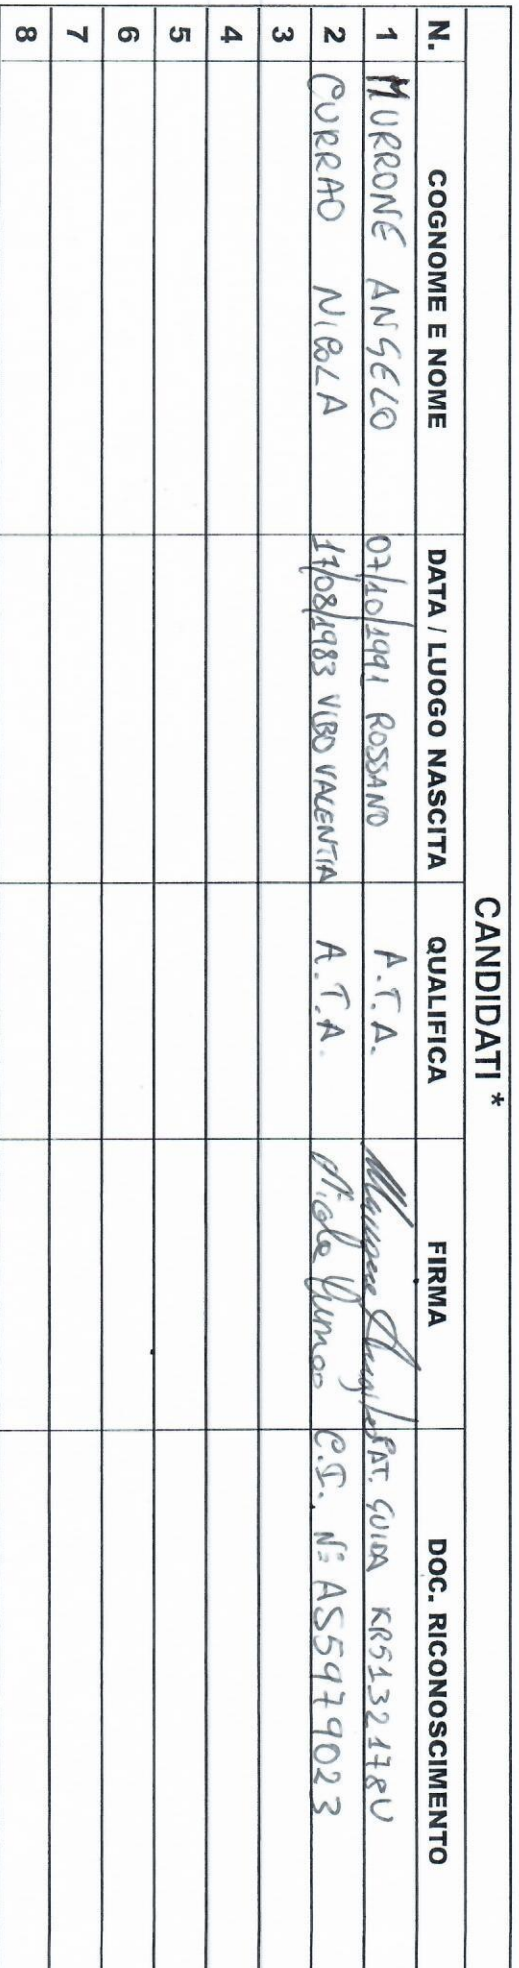 CANDIDATI *
N. COGNOME E NOME DATA / LUOGO NASCITA QUALIFICA FIRMA DOC. RICONOSCIMENTO
1 MURRONE ANGELO 07/10/1991 ROSSANO A.T.A. Murrone Angelo PAT. GUIDA KR5132178U
2 CURRAO NICOLA 17/08/1983 VIBO VALENTIA A.T.A. Nicola Currao C.I. N° AS5979023
3
4
5
6
7
8